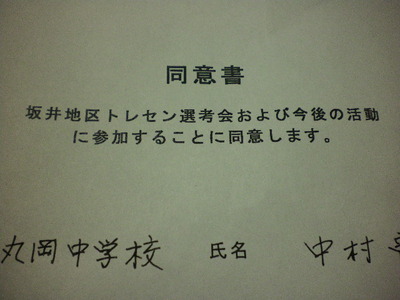 同意書
坂井地区トレセン選考会および今後の活動
に参加することに同意します。
丸岡中学校 氏名 中村